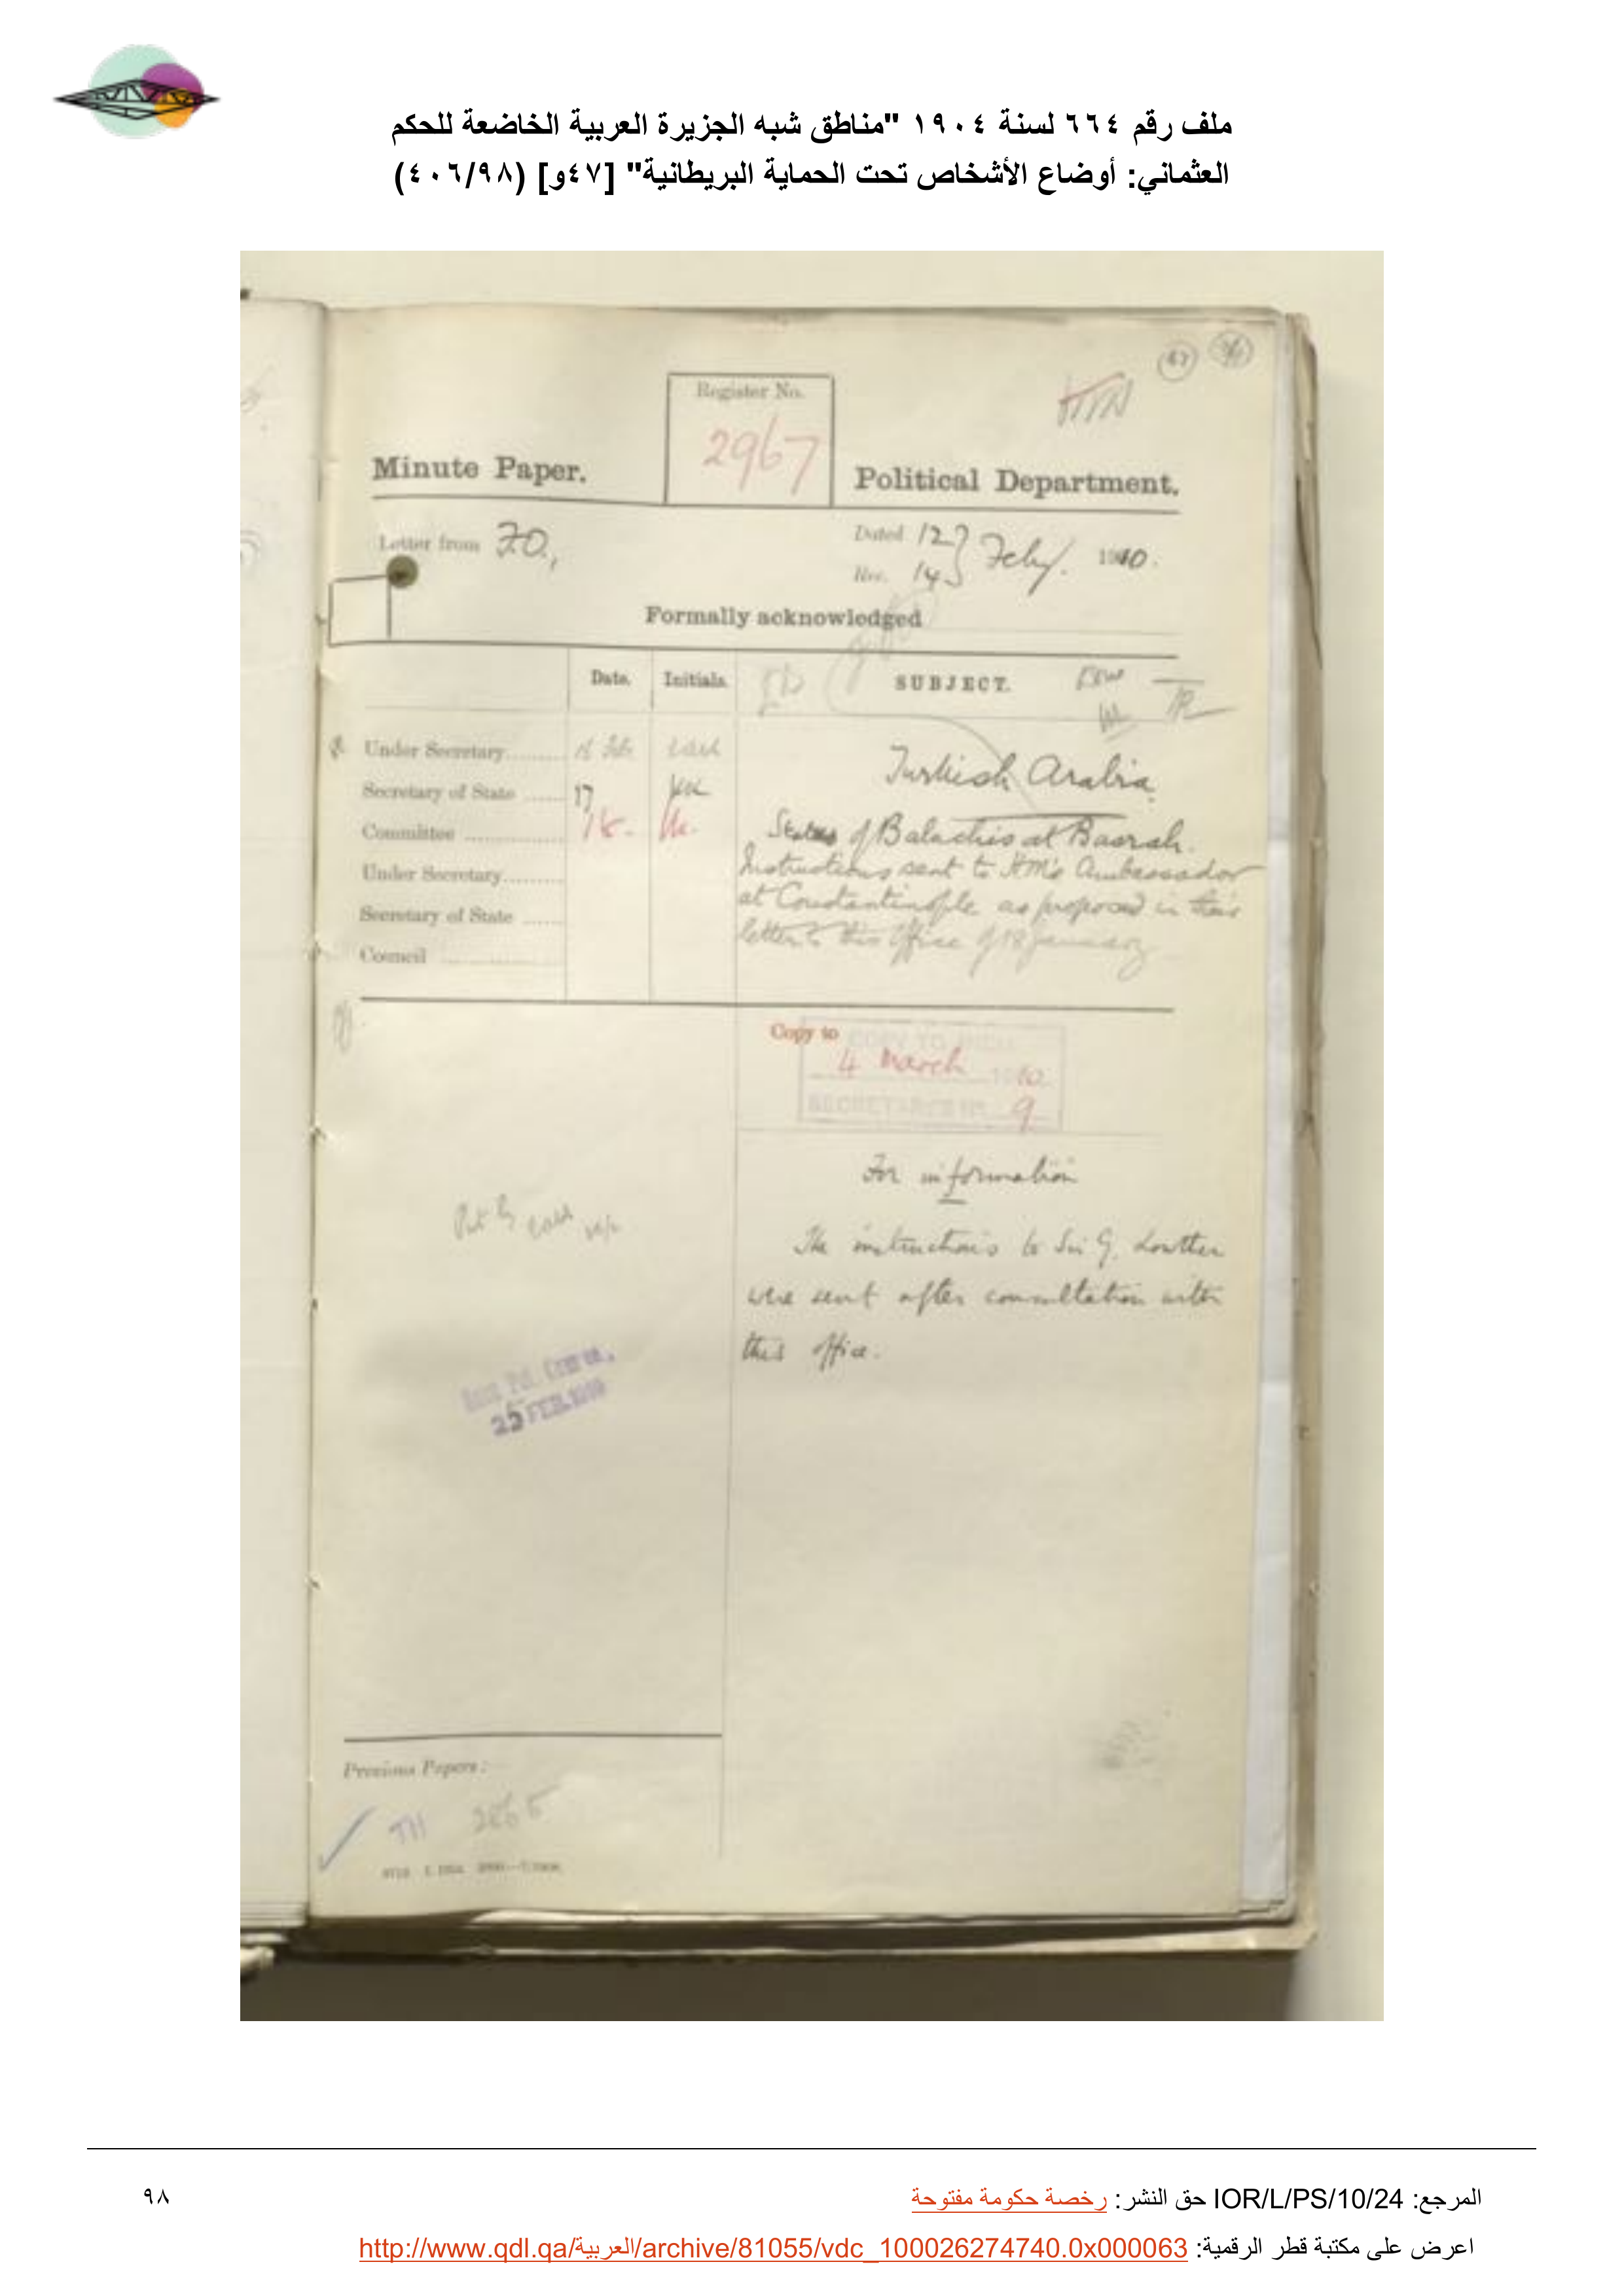 ملف رقم ٦٦٤ لسنة ١٩٠٤ "مناطق شبه الجزيرة العربية الخاضعة للحكم
العثماني: أوضاع الأشخاص تحت الحماية البريطانية" [٤٧و] (٤٠٦/٩٨)
Register No.
2967
Minute Paper.
Political Department.
Letter from F.O.,
Dated 12 } Feby. 1910.
Rec. 14
Formally acknowledged
Date. Initials. SUBJECT.
Under Secretary
Secretary of State 17
Committee 18.
Under Secretary
Secretary of State
Council
Turkish Arabia.
Status of Baluchis at Basrah.
Instructions sent to HM's Ambassador
at Constantinople as proposed in their
letter to this Office of 18 January
Copy to
COPY TO INDIA
4 March 1910
SECRETARY'S No. 9
For information
The instructions to Sir G. Lowther
were sent after consultation with
this office.
Put by
25 FEB 1910
Previous Papers:
2865
المرجع: IOR/L/PS/10/24 حق النشر: رخصة حكومة مفتوحة
٩٨
اعرض على مكتبة قطر الرقمية: http://www.qdl.qa/العربية/archive/81055/vdc_100026274740.0x000063